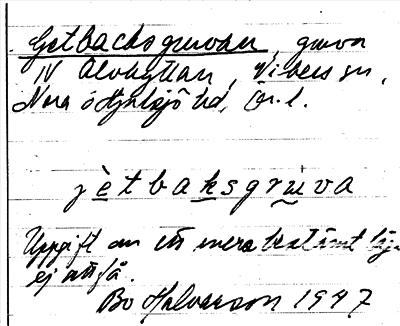 Getbacksgruvan, gruva
IV Älvhyttan, Vibers sn,
Nora ó Hjulsjö hd, Ör. l.
jètbaksgruva
Uppgift om ett mera bestämt läge
ej att få.
Bo Halvarson 1947